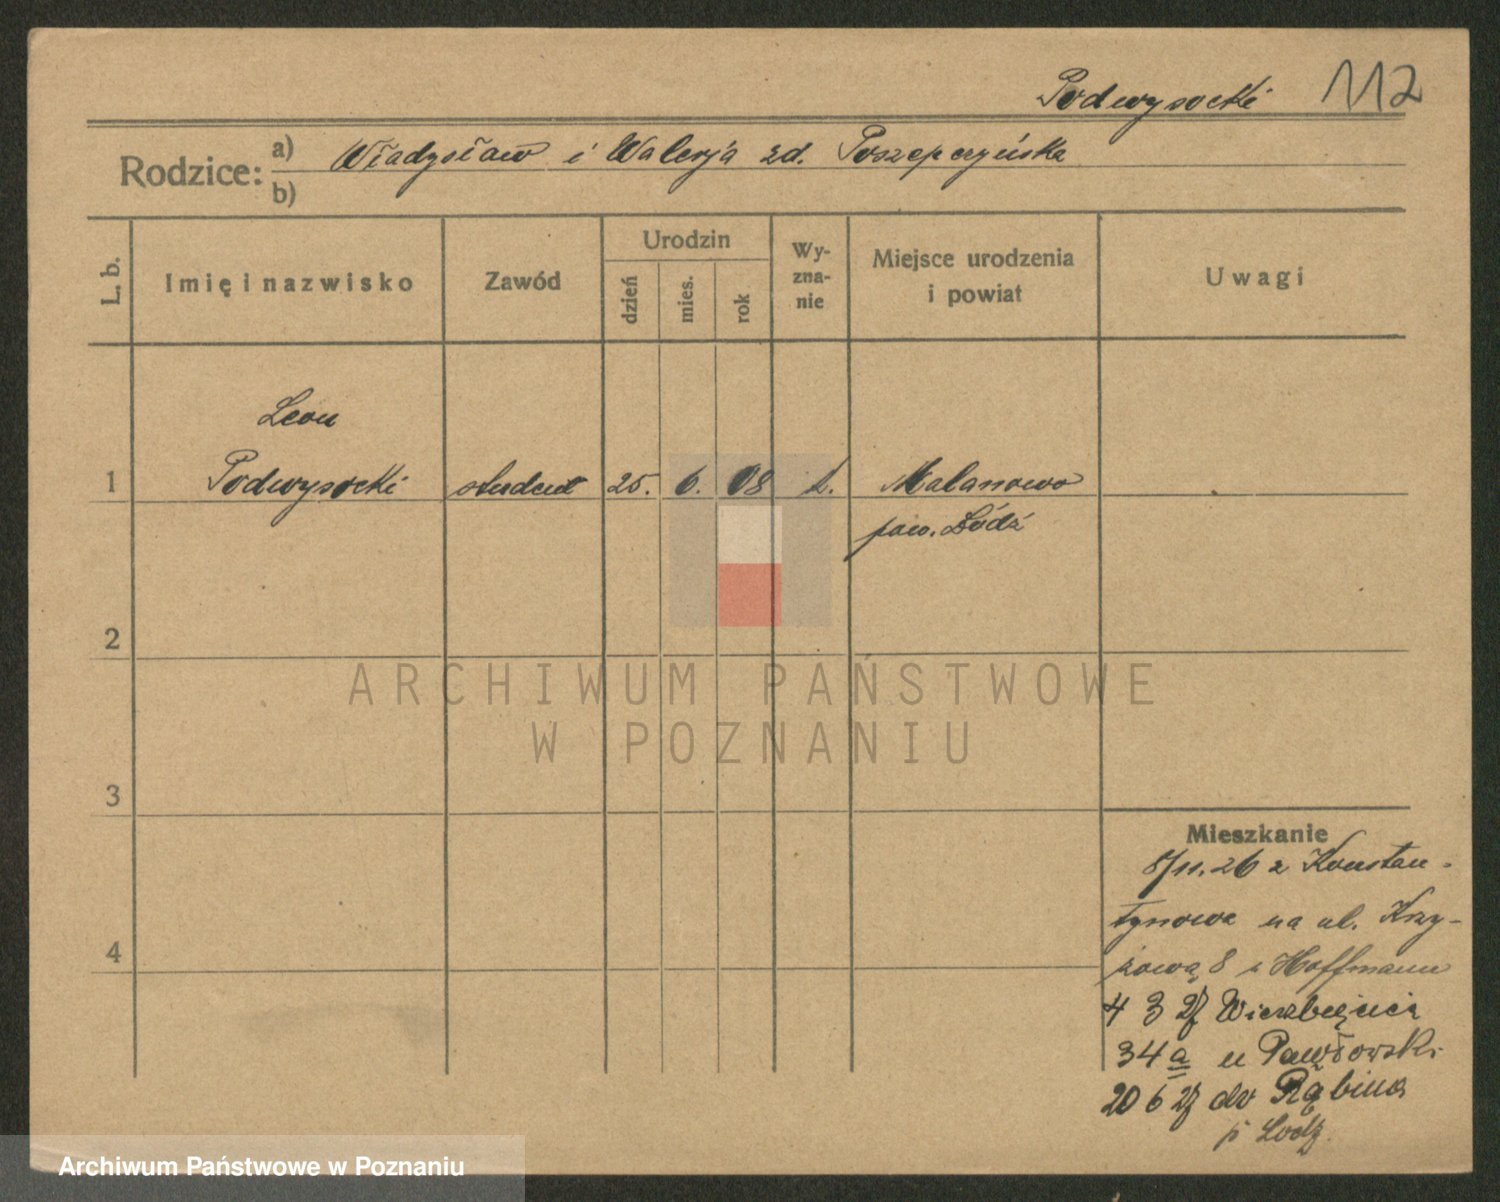 Podwysocki 112
Rodzice: a) Władysław i Walerja zd. Poszepczyńska
b)
L. b.
Imię i nazwisko
Zawód
Urodzin
dzień
mies.
rok
Wy-
zna-
nie
Miejsce urodzenia
i powiat
Uwagi
Leon
1 Podwysocki student 25. 6. 08 k. Malanowo
pow. Łódź
2
ARCHIWUM PAŃSTWOWE
W POZNANIU
3
Mieszkanie
8/11.26 z Konstan-
tynowa na ul. Krzy-
4
żową 8 u Hoffmann
4 3 27 Wierzbięcice
34a u Pawłowski
20 6 27 do Rąbina
p Łodz.
Archiwum Państwowe w Poznaniu